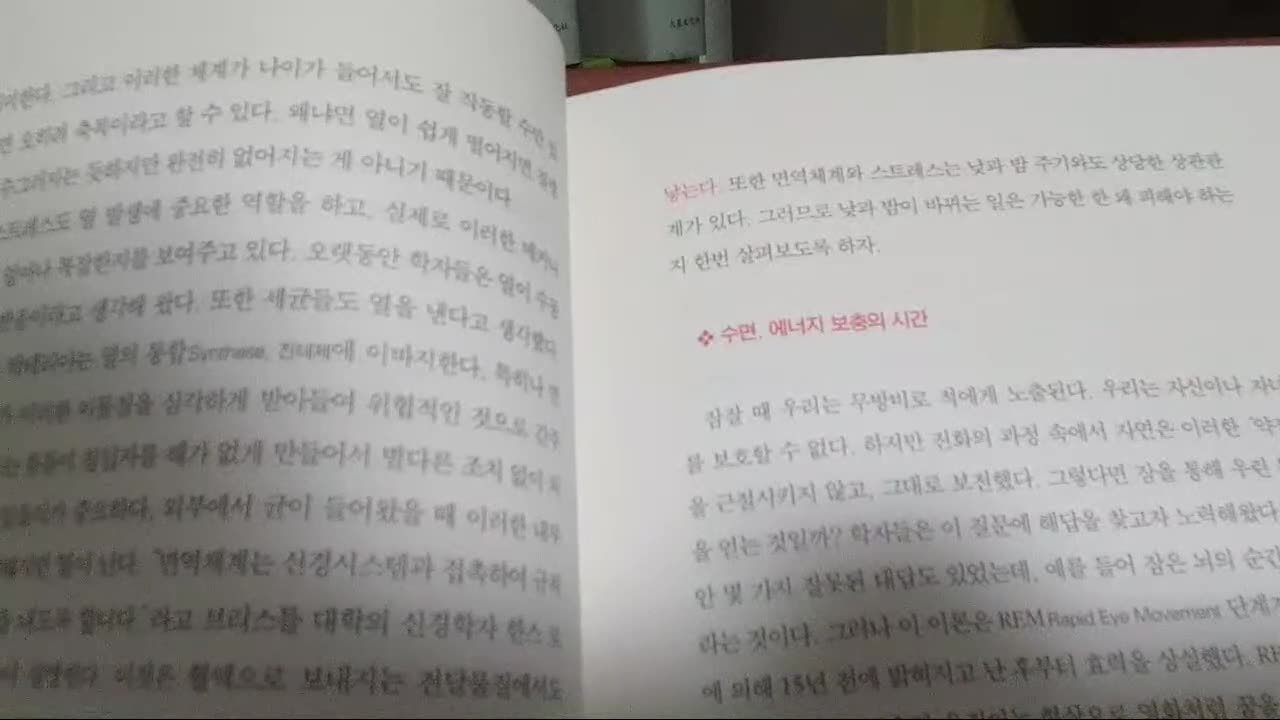 이러한다. 그리고 이러한 체계가 나이가 들어서도 잘 작동할 수만 있
면 오히려 축복이라고 할 수 있다. 왜냐면 열이 쉽게 떨어지면
수그러지는 듯하지만 완전히 없어지는 게 아니기 때문이다
스트레스도 열 발생에 중요한 역할을 하고, 실제로 이러한 메커니
얼마나 복잡한지를 보여주고 있다. 오랫동안 학자들은 열이 수동
반응이라고 생각해 왔다. 또한 세균들도 열을 낸다고 생각했다
박테리아는 열의 통합Synthese, 진테제에 이바지한다. 특히나
이러한 이물질을 심각하게 받아들여 위험적인 것으로 간주
침입자를 해가 없게 만들어서 별다른 조치 없이
중요하다. 외부에서 균이 들어왔을 때 이러한 내부
불이 난다. "면역체계는 신경시스템과 접촉하여
합니다"라고 브리스틀 대학의 신경학자 한스 로
설명한다. 이것은 혈액으로 보내지는 전달물질에서도
낳는다. 또한 면역체계와 스트레스는 낮과 밤 주기와도 상당한 상관관
계가 있다. 그러므로 낮과 밤이 바뀌는 일은 가능한 한 왜 피해야 하는
지 한번 살펴보도록 하자.
❖ 수면, 에너지 보충의 시간
잠잘 때 우리는 무방비로 적에게 노출된다. 우리는 자신이나 자녀
를 보호할 수 없다. 하지만 진화의 과정 속에서 자연은 이러한 '약
을 근절시키지 않고, 그대로 보진했다. 그렇다면 잠을 통해 우린
을 얻는 것일까? 학자들은 이 질문에 해답을 찾고자 노력해왔다
안 몇 가지 잘못된 대답도 있었는데, 예를 들어 잠은 뇌의 순간
라는 것이다. 그러나 이 이론은 REM Rapid Eye Movement 단계가
에 의해 15년 전에 밝혀지고 난 후부터 효력을 상실했다. RE
현상으로 영화처럼 꿈을